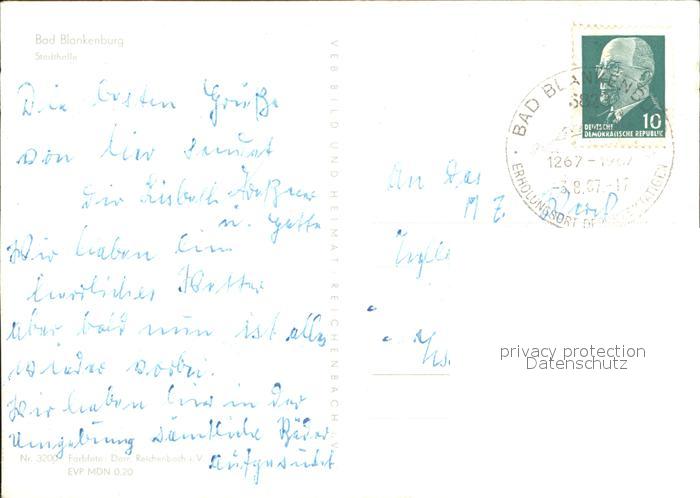 Bad Blankenburg
Stadthalle
VEB BILD UND HEIMAT · REICHENBACH I. V.
Die besten Grüße
von hier sendet
Dir Lisbeth
u. Gatte
Wir haben hier
herrliches Wetter
aber bald nun ist alles
wieder vorbei.
Wir haben hier in der
Umgebung sämtliche Bäder
aufgesucht
Nr. 3200 Farbfoto: Darr, Reichenbach i. V.
EVP MDN 0,20
10
DEUTSCHE
DEMOKRATISCHE REPUBLIK
BAD BLANKENBURG
682
1267-1967
-3.8.67-17
ERHOLUNGSORT DER WERKTÄTIGEN
An das
M Z
privacy protection
Datenschutz